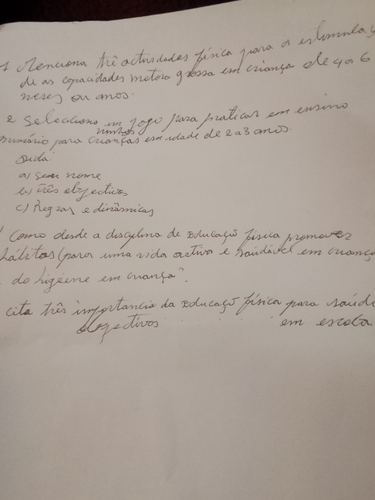 1 Menciona três actividades física para a estimulaç
de as capacidades motora grossa em criança de 4 a 6
meses ou anos.
2 Selecciona um jogo para praticar em ensino
primário para minhas crianças em idade de 2 a 3 anos
a) seu nome
b) três objectivos
c) Regras e dinâmicas
Como desde a disciplina de Educação física promover
habitos para uma vida activa e saudável em crianç
de higiene em criança.
cita três importancia da Educaçõ física para saúde
objectivos em escola